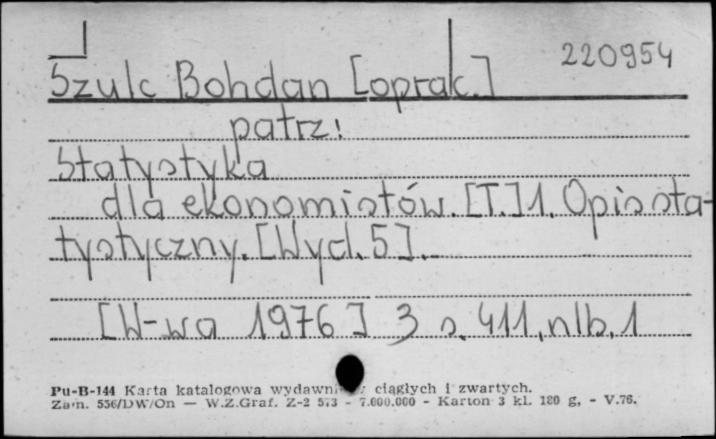 220954
Szulc Bohdan [oprac.]
patrz:
Statystyka
dla ekonomistów. [T.] 1. Opis sta-
tystyczny. [Wyd. 5].
[W-wa 1976] 3 s. 411, nlb. 1
Pu-B-144 Karta katalogowa wydawnictw ciągłych i zwartych.
Zam. 556/DW/On — W.Z.Graf. Z-2 573 - 7.000.000 - Karton 3 kl. 180 g. - V.76.